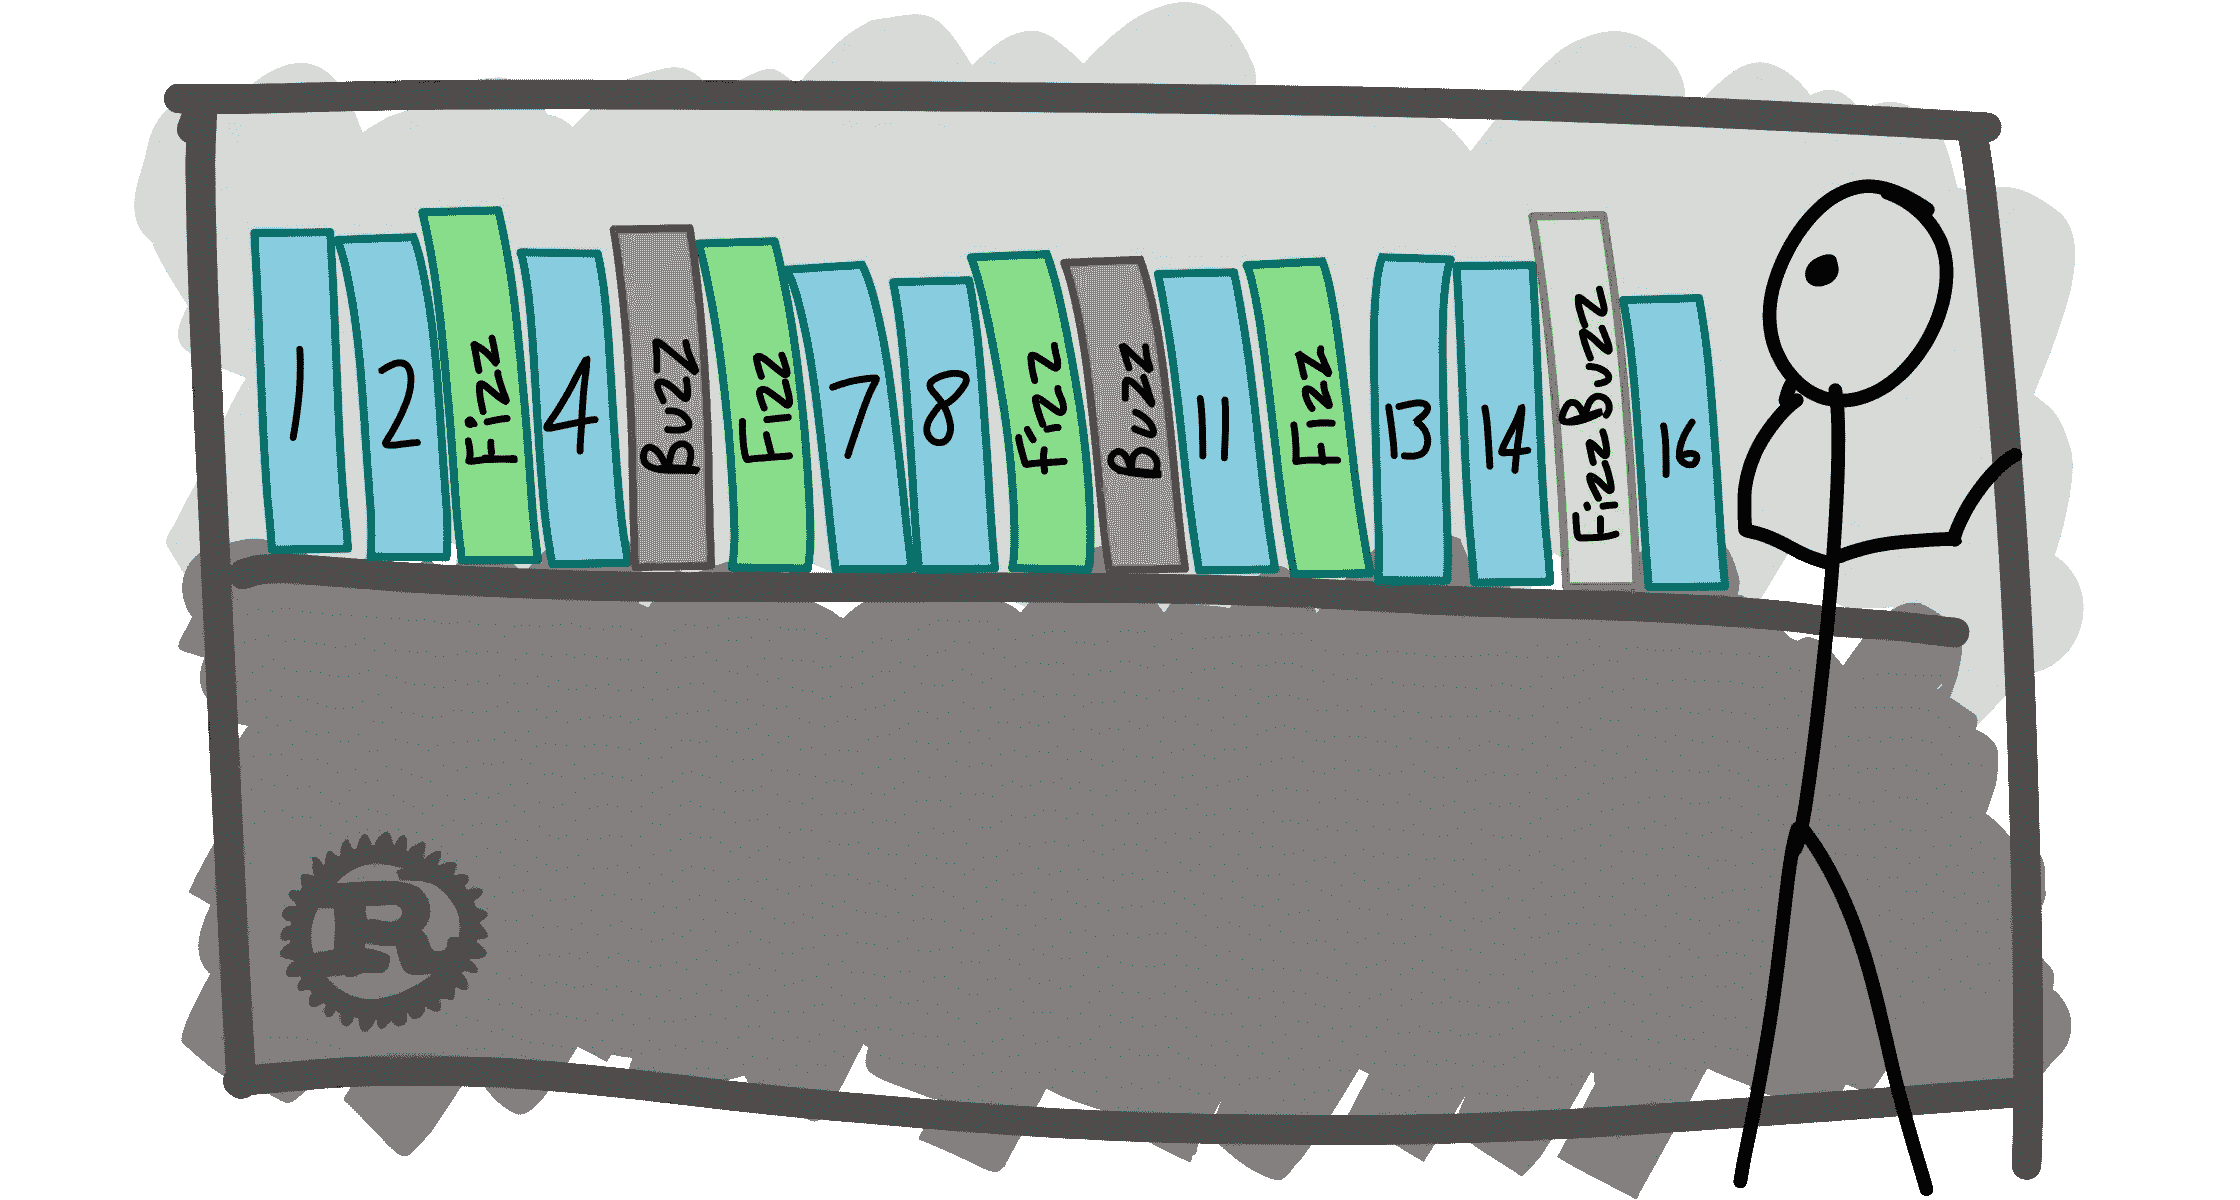 1 2 Fizz 4 Buzz Fizz 7 8 Fizz Buzz 11 Fizz 13 14 FizzBuzz 16
R